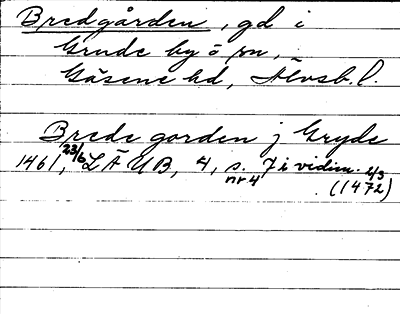 Bredgården, gd i
Grude by o sn,
Gäsene hd, Älvsb. l.
Brede gorden j Gryde
1461, 23/6, LÄUB, 4, s. 7 i vidim. 2/3
nr 4 (1472)